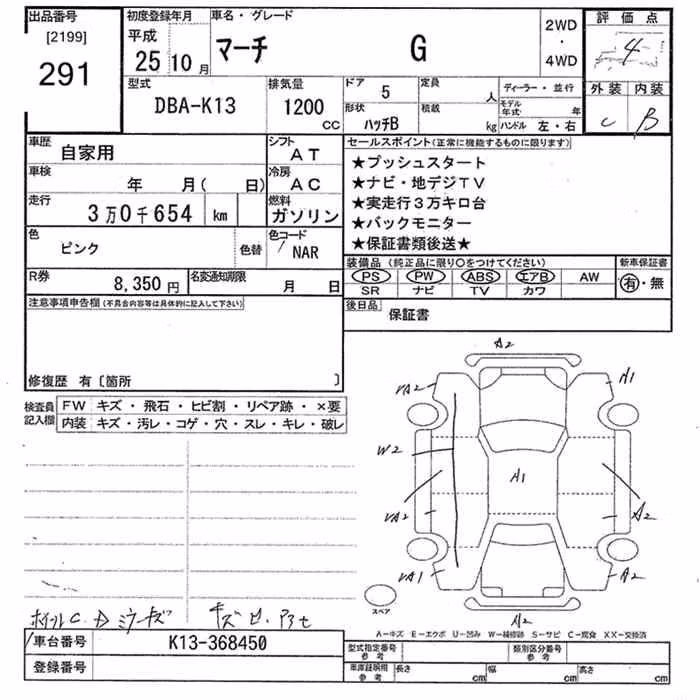 出品番号
[2199]
291
初度登録年月
平成
25 10 月
車名・グレード
マーチ G
2WD
・
4WD
評価点
4
外装 内装
C B
型式
DBA-K13
排気量
1200
CC
ドア 5
形状
ハッチB
定員 人
積載 kg
ディーラー・並行
モデル年式 年
ハンドル 左・右
車歴 自家用
車検 年 月( 日)
走行
3万0千654 km
シフト
AT
冷房
AC
燃料
ガソリン
色
ピンク
色替
色コード
NAR
R券
8,350 円
名変通知期限
月 日
注意事項申告欄(不具合内容等は具体的に記入して下さい)
修復歴 有〔箇所 〕
セールスポイント(正常に機能するものに限ります)
★プッシュスタート
★ナビ・地デジTV
★実走行3万キロ台
★バックモニター
★保証書類後送★
装備品(純正品に限り○をつけてください)
PS PW ABS エアB AW
SR ナビ TV カワ
新車保証書
有・無
後日品
保証書
検査員
記入欄
FW キズ・飛石・ヒビ割・リペア跡・×要
内装 キズ・汚レ・コゲ・穴・スレ・キレ・破レ
A2
A1
W2
A1
A2
A2
A2
スペア
A-キズ E-エクボ U-凹み W-補修跡 S-サビ C-腐食 XX-交換済
車台番号 K13-368450
登録番号
型式指定番号
参考
類別区分番号
参考
車庫証明用
参考
長さ cm
幅 cm
高さ cm